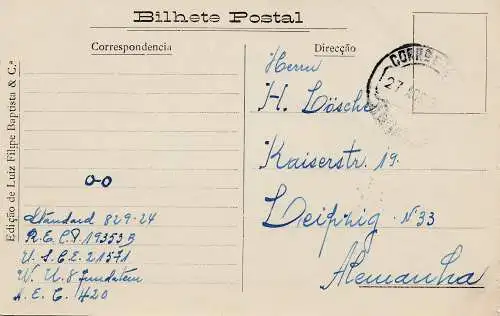 Bilhete Postal
Correspondencia
Direcção
Edição de Luiz Filipe Baptista & C.ª
CORREIO
27 AGO
Herrn
H. Lösche
Kaiserstr. 19.
Leipzig. N33
Alemanha
o-o
Standard 829-24
R.E.C.P. 19353B
U.S.C.E. 21571
W. U. 8
A.E.C. 420